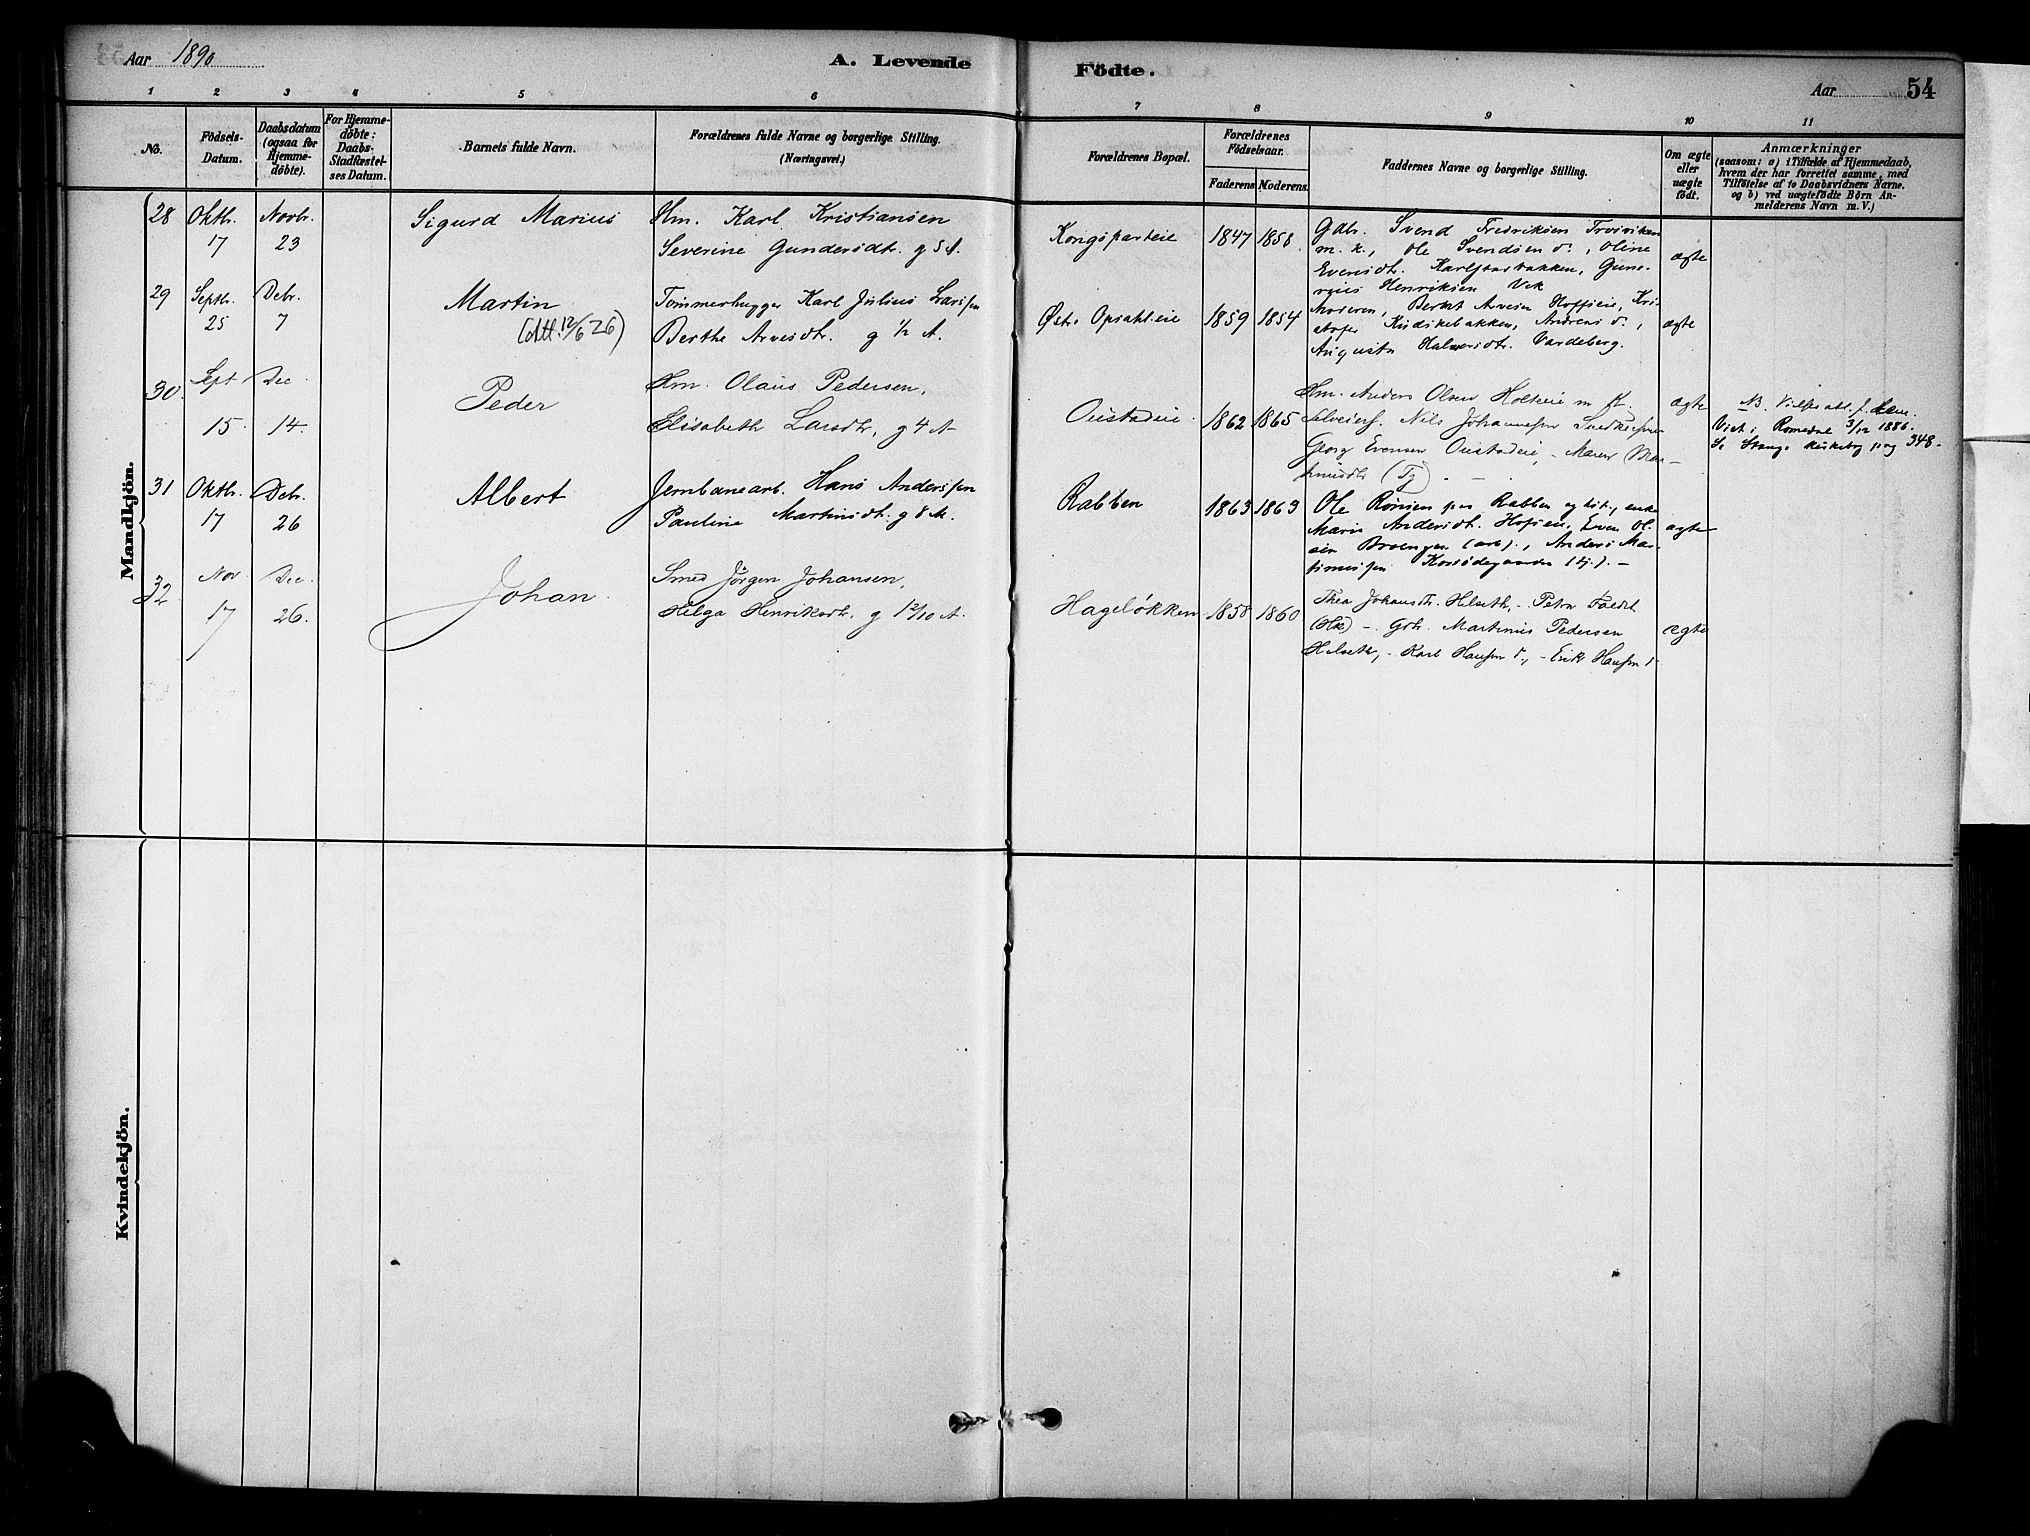 Aar 1890
A. Levende
Födte.
Aar 54
1 2 3 4 5 6 7 8 9 10 11
No.
Födsels-Datum.
Daabsdatum (ogsaa for Hjemmedöbte).
For Hjemmedöbte: Daabs-Stadfæstelses Datum.
Barnets fulde Navn.
Forældrenes fulde Navne og borgerlige Stilling.
(Næringsvei.)
Forældrenes Bopæl.
Forældrenes Födselsaar.
Faderens Moderens.
Faddernes Navne og borgerlige Stilling.
Om ægte eller uægte födt.
Anmærkninger
(saasom: a) i Tilfælde af Hjemmedaab,
hvem der har forrettet samme, med
Tilföielse af to Daabsvidners Navne,
og b) ved uægtefödte Börn Anmelderens Navn m. V.)
Mandkjön.
28 Oktbr. 17 Novbr. 23
Sigurd Marius
Hm. Karl Kristiansen
Severine Gundersdtr. g 5 A.
Kongsparteie 1847 1858
Gdbr. Svend Fredriksen
m. k., Ole Svendsen do., Oline
Evensdtr. Karlstadbakken,
Henriksen Vik
ægte
29 Septbr. 25 Debr. 7
Martin
(Att. 12/6 26)
Tømmerhugger Karl Julius Larssen
Berthe Arnesdtr. g 1/2 A.
Østr. Opsahleie 1859 1854
Moderen, Bernt Arnesen Hoffseie, Kristofer
Kirkebakken, Andreas do.,
Augusta Halvorsdtr. Vardeberg.
ægte
30. Sept 15. Dec. 14.
Peder
Hm. Olaus Pedersen,
Elisabeth Larsdtr, g 4 A
Oustadeie 1862 1865
Hm. Anders Olsen Holteie m k.
Selveierf. Nils Johannessen
Georg Evensen Oustadeie, - Maren
(Tj)
ægte
NB.
Viet i Romedal 3/12 1886.
Se Stange kirkebog pag 348.
31 Oktbr. 17 Debr. 26
Albert
Jernbanearb. Hans Anderssen
Pauline Martinsdtr. g 8 M.
Rabben 1863 1863
Ole Rønsen Rabben og
Marie Andersdtr. Hofseie, Even Olsen
(arb)., Anders Martinussen
(tj). -
ægte
32 Nov 17 Dec. 26.
Johan.
Smed Jörgen Johansen,
Helga Henriksdtr. g 12/10 A.
Hageløkken 1858 1860
Thea Johansdtr. Helseth, - Petra
- Gdr. Martinus Pedersen
Helseth, - Karl Hansen do., - Erik Hansen do
ægte
Kvindekjön.